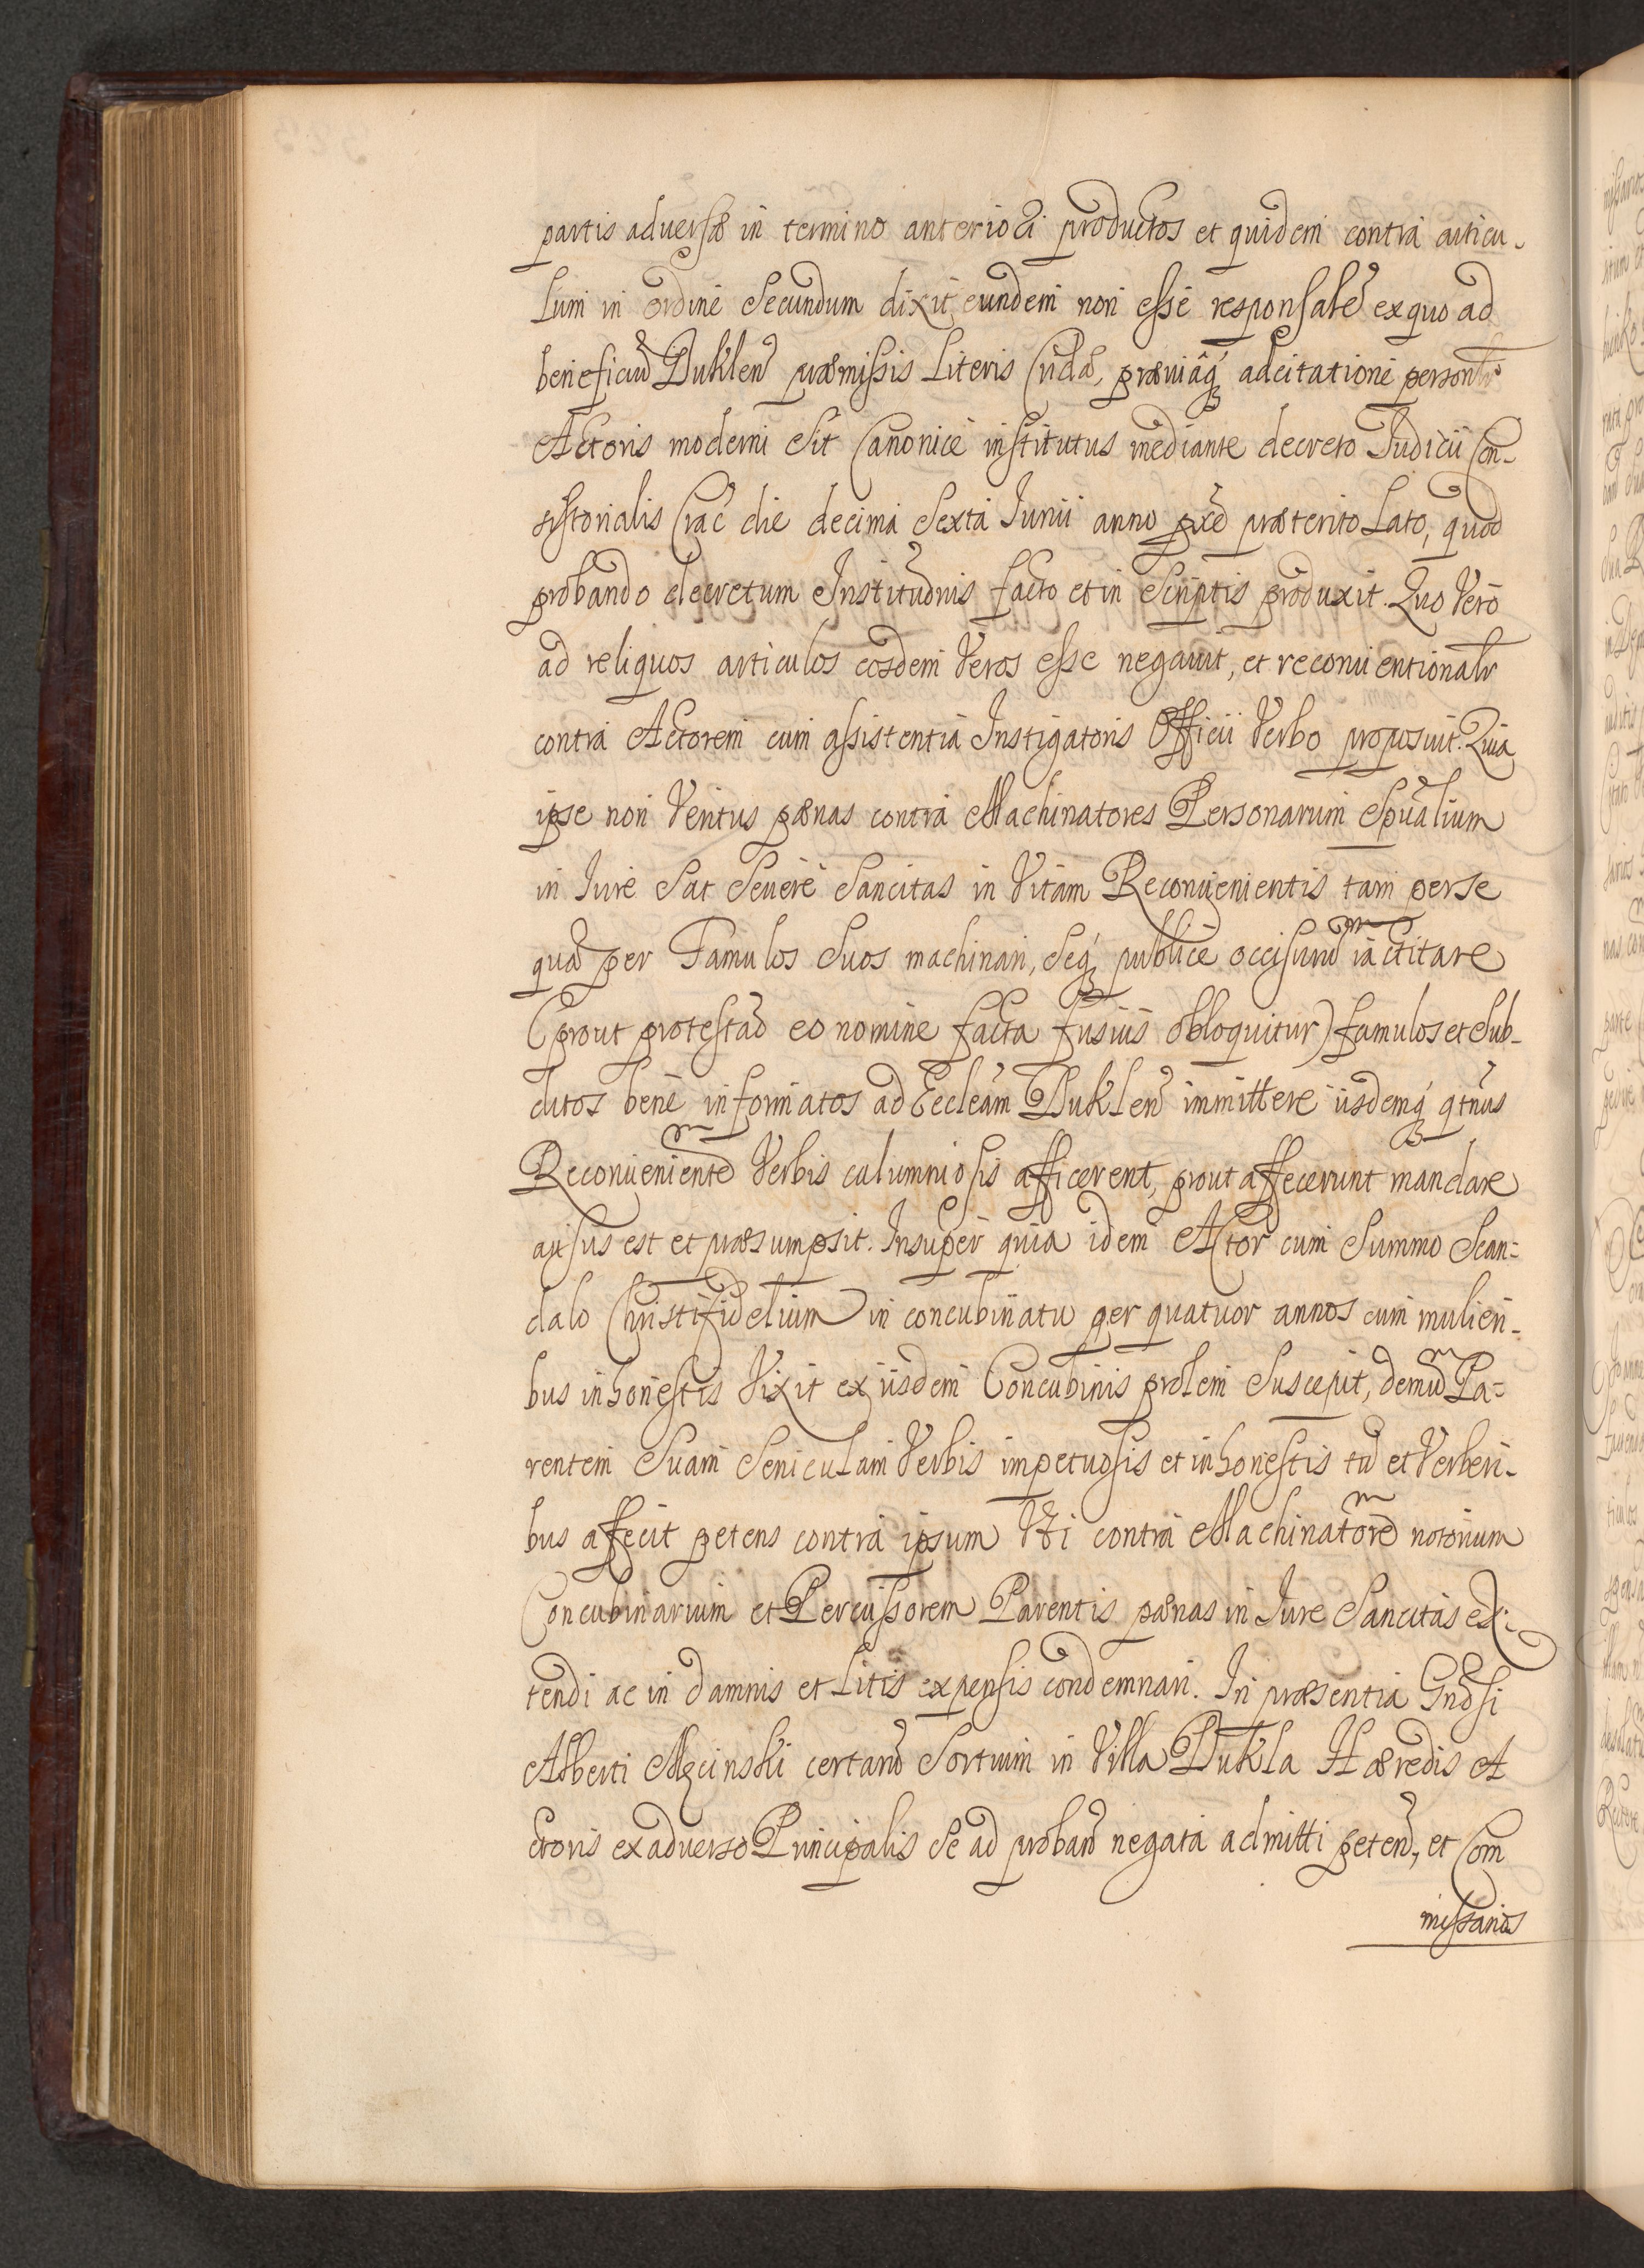 partis aduersæ in termino anteriori productos et quidem contra articu-
lum in ordine Secundum dixit, eundem non esse responsalē ex quo ad
beneficiū Duklen̄ præmissis Literis Cridæ, præuiaq́ adcitatione personlr̄
Actoris moderni Sit Canonicè institutus mediante decreto Iudicii Con-
sistorialis Crac̄ die decima Sexta Iunii anno px̄ē præterito Lato, quod
probando decretum Instituōnis facto et in Scriptis produxit. Quo Vero
ad reliquos articulos eosdem Veros esse negauit, et reconuentionalr̄
contra Actorem cum assistentia Instigatoris Officii Verbo proposuit. Quia
ipse non Veritus pænas contra Machinatores Personarum Spūalium
in Iure Sat Seuerè Sancitas in Vitam Reconuenientis tam per se
quā per Famulos Suos machinari, Seq́ publicè occisurū iactitare
(prout protestaō eo nomine facta fusius obloquitur) famulos et Sub-
ditos benè informatos ad Eccleām Duklen̄ immittere iisdemq́ qtn̄us
Reconuenientē Verbis calumniosis afficerent, prout affecerunt mandare
ausus est et præsumpsit. Insuper quia idem Actor cum Summo Scan=
dalo Christifidelium in concubinatu per quatuor annos cum mulieri-
bus inhonestis Vixit ex iisdem Concubinis prolem Suscepit, demū Pa=
rentem Suam Seniculam Verbis impetuosis et inhonestis tū et Verberi-
bus affecit petens contra ipsum Vti contra Machinatorē notorium
Concubinarium et Percussorem Parentis pænas in Iure Sancitas ex-
tendi ac in damnis et Litis expensis condemnari. In præsentia Gnōsi
Alberti Męcinski certarū Sortium in Villa Dukla Hæredis A
ctoris ex aduerso Principalis Se ad proban̄ negata admitti peten̄, et Com
missarios